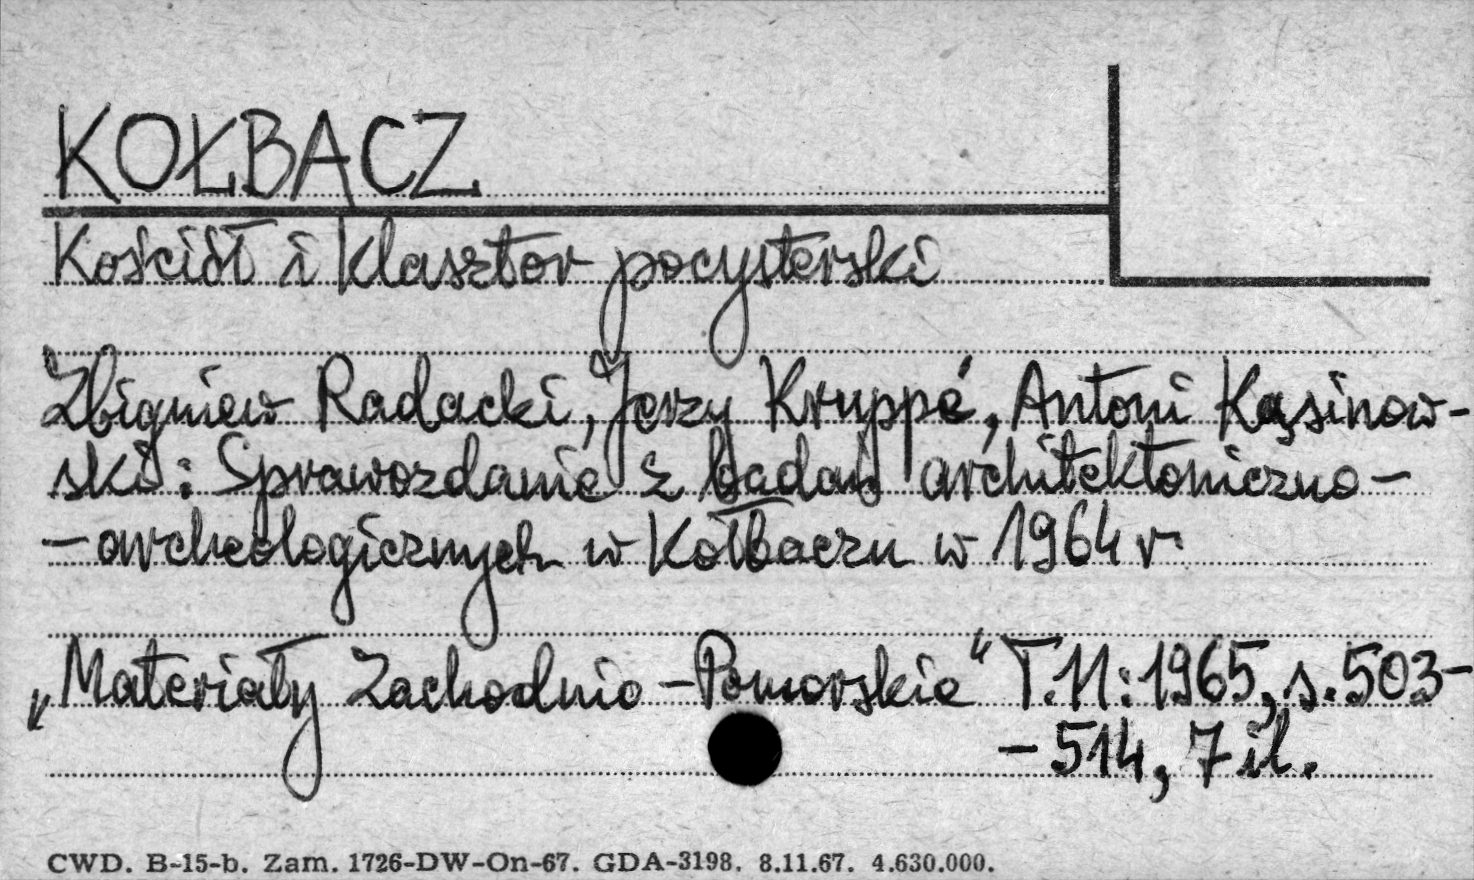 KOŁBACZ
Kościół i klasztor pocysterski
Zbigniew Radacki, Jerzy Kruppé, Antoni Kąsinow-
ski: Sprawozdanie z badań architektoniczno-
-archeologicznych w Kołbaczu w 1964 r.
„Materiały Zachodnio-Pomorskie" T.11:1965, s. 503-
-514, 7 il.
CWD. B-15-b. Zam. 1726-DW-On-67. GDA-3198. 8.11.67. 4.630.000.